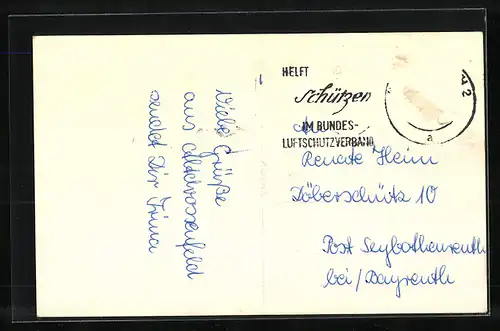 Viele Grüße
aus Altdrossenfeld
sendet Dir Irma
HELFT
schützen
IM BUNDES-
LUFTSCHUTZVERBAND
2
a
An
Renate Heim
Döberschütz 10
Post Seybothenreuth
bei/Bayreuth